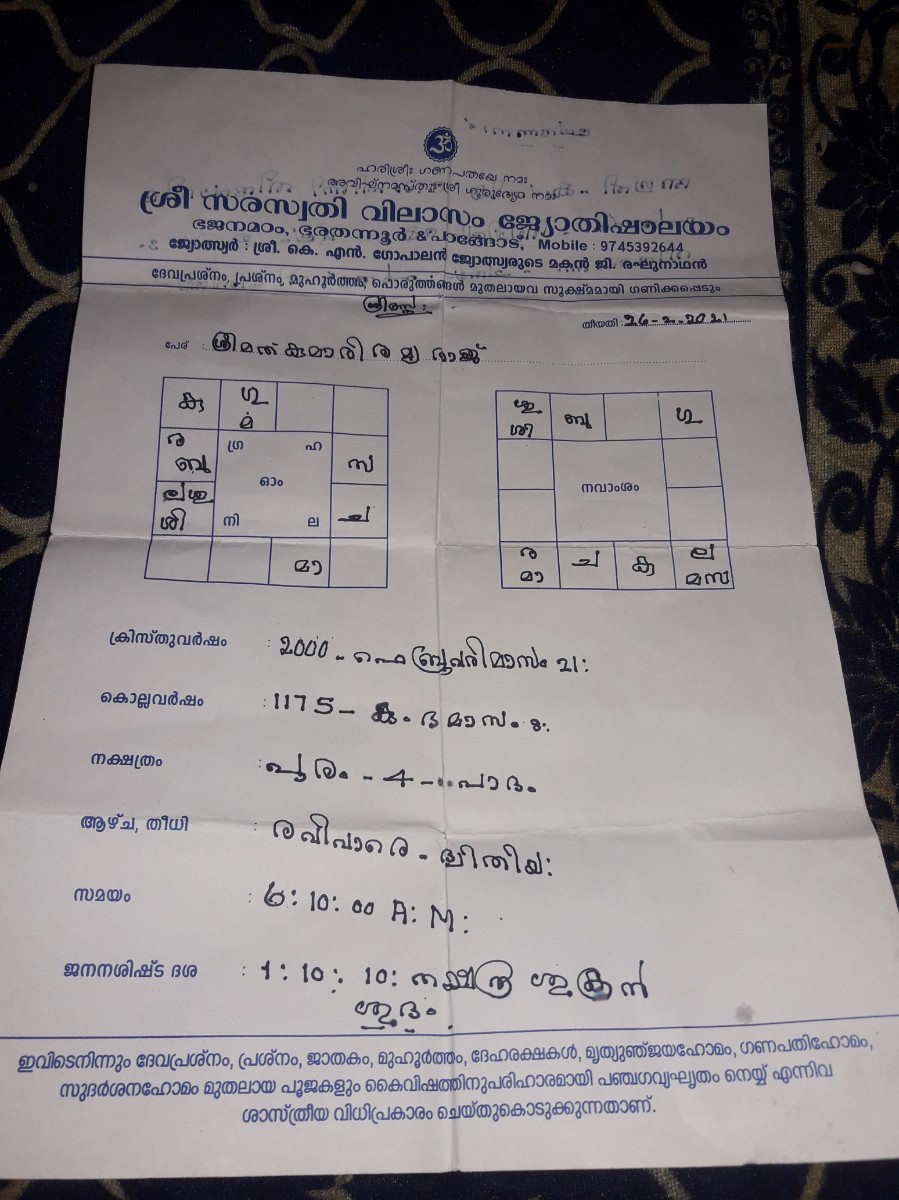 ഹരിശ്രീഃ ഗണപതയേ നമഃ
അവിഘ്നമസ്തുഃ ശ്രീ ഗുരുഭ്യോ നമഃ
ശ്രീ സരസ്വതി വിലാസം ജ്യോതിഷാലയം
ഭജനമഠം, ഭരതന്നൂർ & പാങ്ങോട്, Mobile : 9745392644
ജ്യോത്സ്യർ : ശ്രീ. കെ. എൻ. ഗോപാലൻ ജ്യോത്സ്യരുടെ മകൻ ജി. രഘുനാഥൻ
ദേവപ്രശ്നം, പ്രശ്നം, മുഹൂർത്തം, പൊരുത്തങ്ങൾ മുതലായവ സൂക്ഷ്മമായി ഗണിക്കപ്പെടും
തീയതി : 26-2-2021
പേര് : ശ്രീമത് കുമാരി രമ്യ രാജ്
കു ഗു മ
ര ബു
ഗ്ര ഹ
സ
ഓം
ല ശു ശി
നി ല
ച
മാ
ശു ശി ബു ഗു
നവാംശം
ര മാ ച കു ല മസ
ക്രിസ്തുവർഷം : 2000 .. ഫെബ്രുവരിമാസം 21:
കൊല്ലവർഷം : 1175 - കുംഭമാസം 8:
നക്ഷത്രം : പൂരം - 4 - പാദം
ആഴ്ച, തീധി : രവിവാരെ - ദ്വിതീയ:
സമയം : 6: 10: 00 A: M:
ജനനശിഷ്ട ദശ : 1: 10: 10: നക്ഷത്ര ശുക്രൻ
ശുഭം.
ഇവിടെനിന്നും ദേവപ്രശ്നം, പ്രശ്നം, ജാതകം, മുഹൂർത്തം, ദേഹരക്ഷകൾ, മൃത്യുഞ്ജയഹോമം, ഗണപതിഹോമം,
സുദർശനഹോമം മുതലായ പൂജകളും കൈവിഷത്തിനുപരിഹാരമായി പഞ്ചഗവ്യഘൃതം നെയ്യ് എന്നിവ
ശാസ്ത്രീയ വിധിപ്രകാരം ചെയ്തുകൊടുക്കുന്നതാണ്.